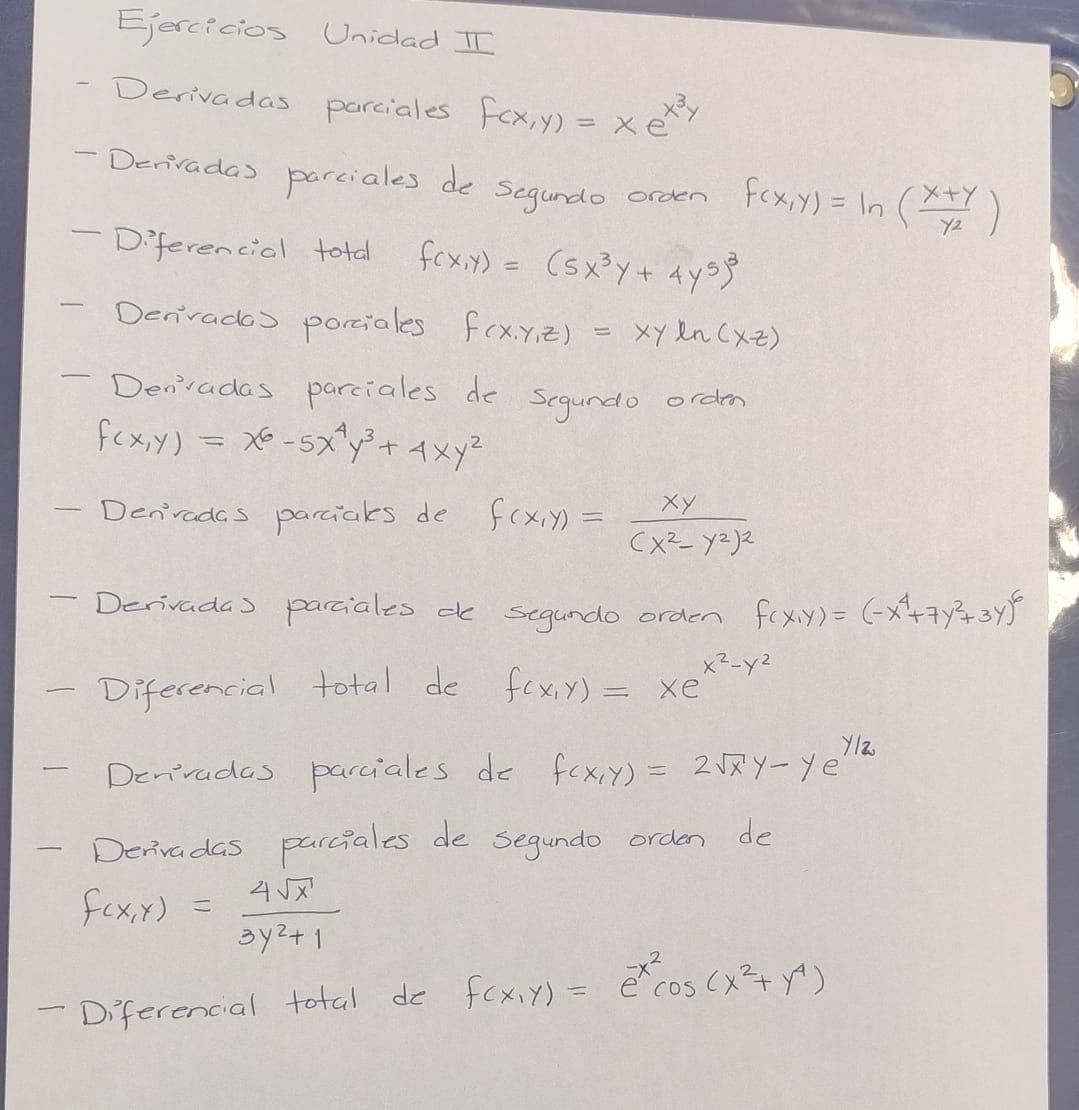 Ejercicios Unidad II
- Derivadas parciales f(x,y) = x e^{x^3y}
- Derivadas parciales de segundo orden f(x,y) = ln (\frac{x+y}{y^2})
- Diferencial total f(x,y) = (5x^3y + 4y^5)^3
- Derivadas parciales f(x,y,z) = xy ln (xz)
- Derivadas parciales de segundo orden
f(x,y) = x^6 - 5x^4y^3 + 4xy^2
- Derivadas parciales de f(x,y) = \frac{xy}{(x^2 - y^2)^2}
- Derivadas parciales de segundo orden f(x,y) = (-x^4+7y^2+3y)^6
- Diferencial total de f(x,y) = xe^{x^2-y^2}
- Derivadas parciales de f(x,y) = 2\sqrt{x}y - ye^{y/2}
- Derivadas parciales de segundo orden de
f(x,y) = \frac{4\sqrt{x}}{3y^2+1}
- Diferencial total de f(x,y) = e^{-x^2} cos (x^2 + y^4)